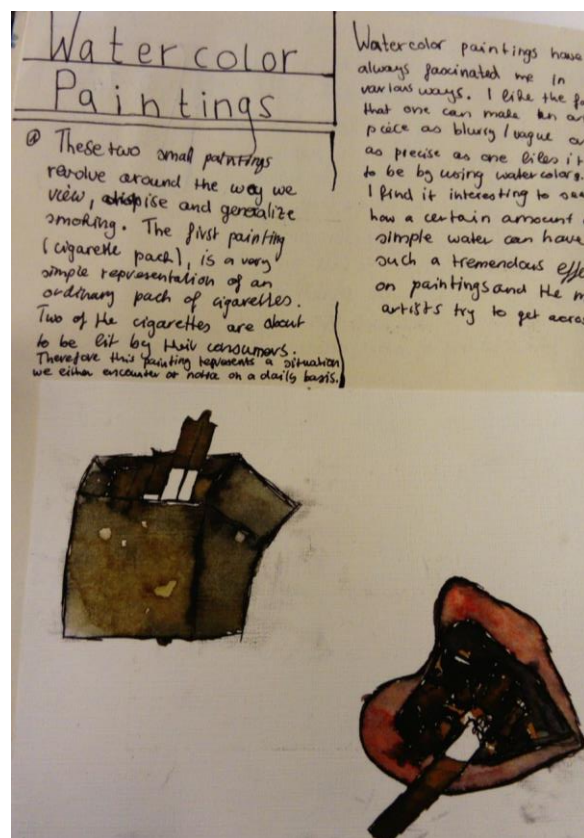 Watercolor
Paintings
These two small paintings
revolve around the way we
view, dispise and genealize
smoking. The first painting
(cigarette pack), is a very
simple representation of an
ordinary pack of cigarettes.
Two of the cigarettes are about
to be lit by their consumers.
Therefore this painting represents a situation
we either encounter or notice on a daily basis.
Watercolor paintings have
always fascinated me in
various ways. I like the
that one can make an
piece as blurry/vague
as precise as one likes it
to be by using watercolors.
I find it interesting to
how a certain amount
simple water can have
such a tremendous
on paintings and the
artists try to get across